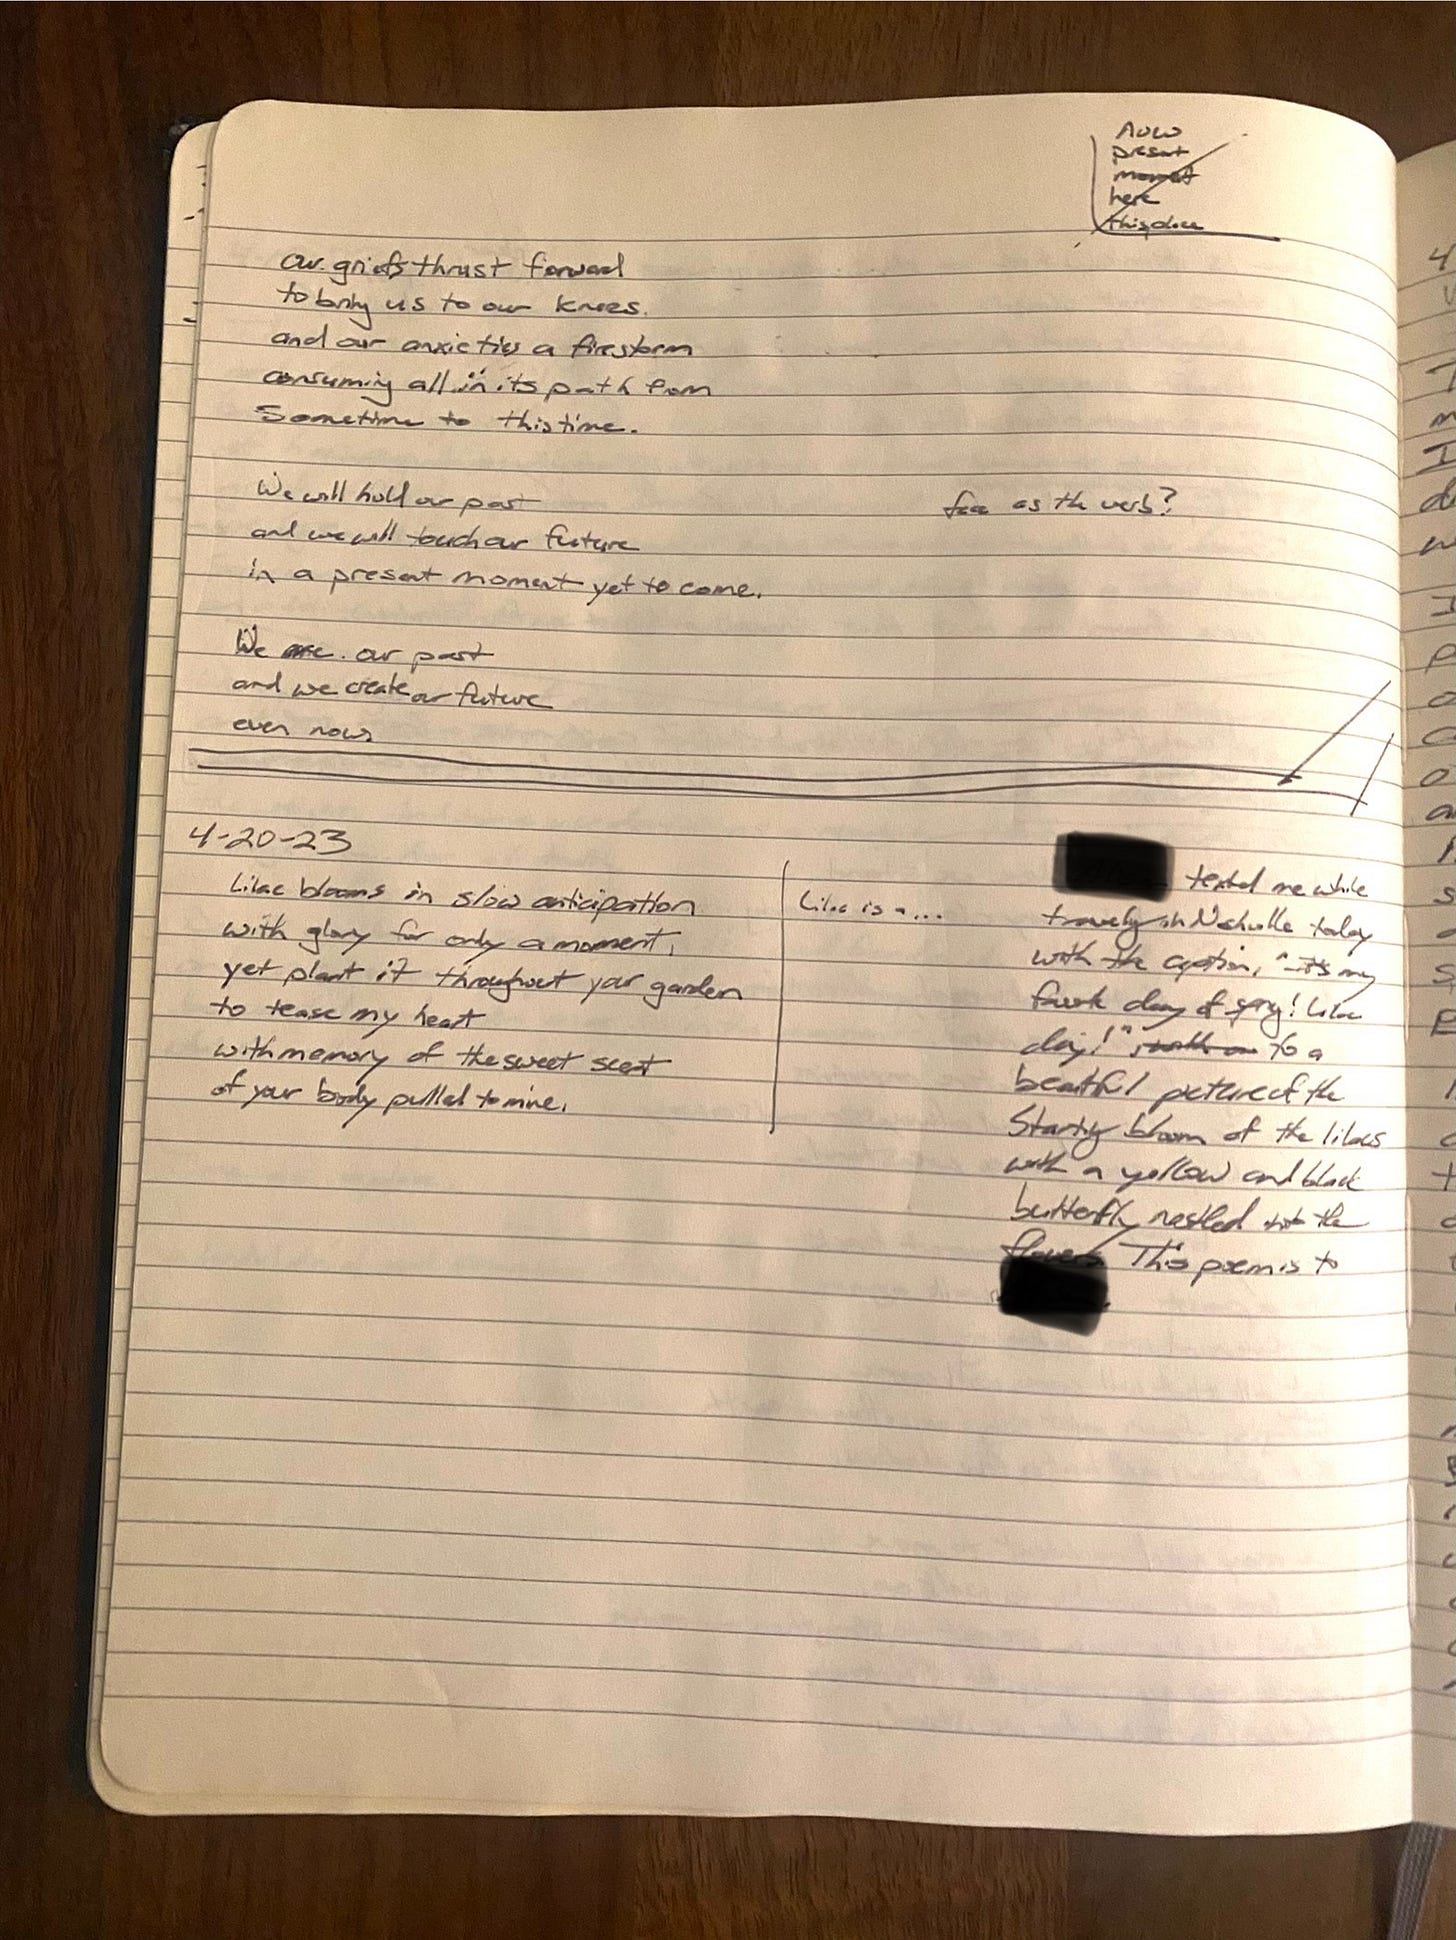 now
present
moment
here
this place
our griefs thrust forward
to bring us to our knees.
and our anxieties a firestorm
consuming all in its path from
Sometime to this time.
We will hold our past
face as the verb?
and we will touch our future
in a present moment yet to come.
We are our past
and we create our future
even now
4-20-23
Lilac blooms in slow anticipation
with glory for only a moment,
yet plant it throughout your garden
to tease my heart
with memory of the sweet scent
of your body pulled to mine.
Lilac is a...
texted me while
traveling in Nashville today
with the caption, "it's my
favorite day of spring! Lilac
day!" to a
beautiful picture of the
Starting bloom of the lilacs
with a yellow and black
butterfly nestled into the
flowers. This poem is to